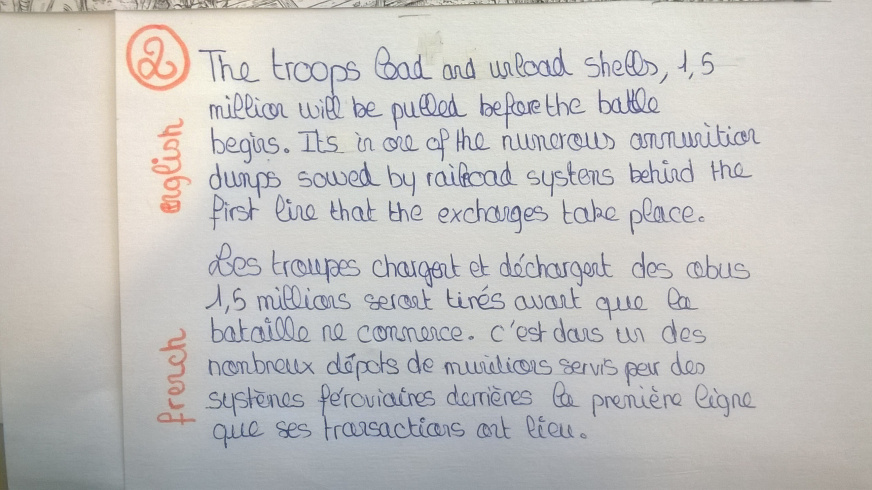 2
english
The troops load and unload shells, 1,5
million will be pulled before the battle
begins. Its in one of the numerous ammunition
dumps sowed by railroad systems behind the
first line that the exchanges take place.
french
Les troupes chargent et déchargent des obus
1,5 millions seront tirés avant que la
bataille ne commence. c'est dans un des
nombreux dépots de munitions servis par des
systèmes féroviaires derrières la première ligne
que ses transactions ont lieu.